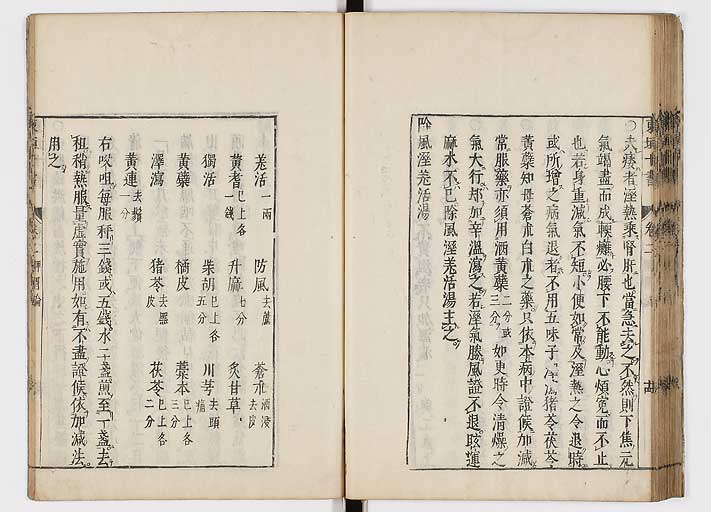 ○夫痿者溼熱乘腎肝也當急去之不然則下焦元
氣竭盡而成軟癱必腰下不能動心煩寃而不止
也若身重減氣不短小便如常及溼熱之令退時
或所增之病氣退者不用五味子澤瀉猪苓茯苓
黃蘗知母蒼朮白朮之藥只依本病中證候加減
常服藥亦須用酒黃蘗二分或三分如更時令清燥之
氣大行却加辛溫瀉之若溼氣勝風證不退眩運
麻木不已除風溼羌活湯主之
除風溼羌活湯
羌活一兩 防風去蘆 蒼朮酒浸去皮
黃耆已上各一錢 升麻七分 炙甘草
獨活 柴胡已上各五分 川芎去頭痛
黃蘗 橘皮 藁本已上各三分
澤瀉 猪苓去黑皮 茯苓已上各二分
黃連去鬚一分
右㕮咀每服秤三錢或五錢水二盞煎至一盞去
柤稍熱服量虛實施用如有不盡證候依加減法
用之
東垣十書
卷二